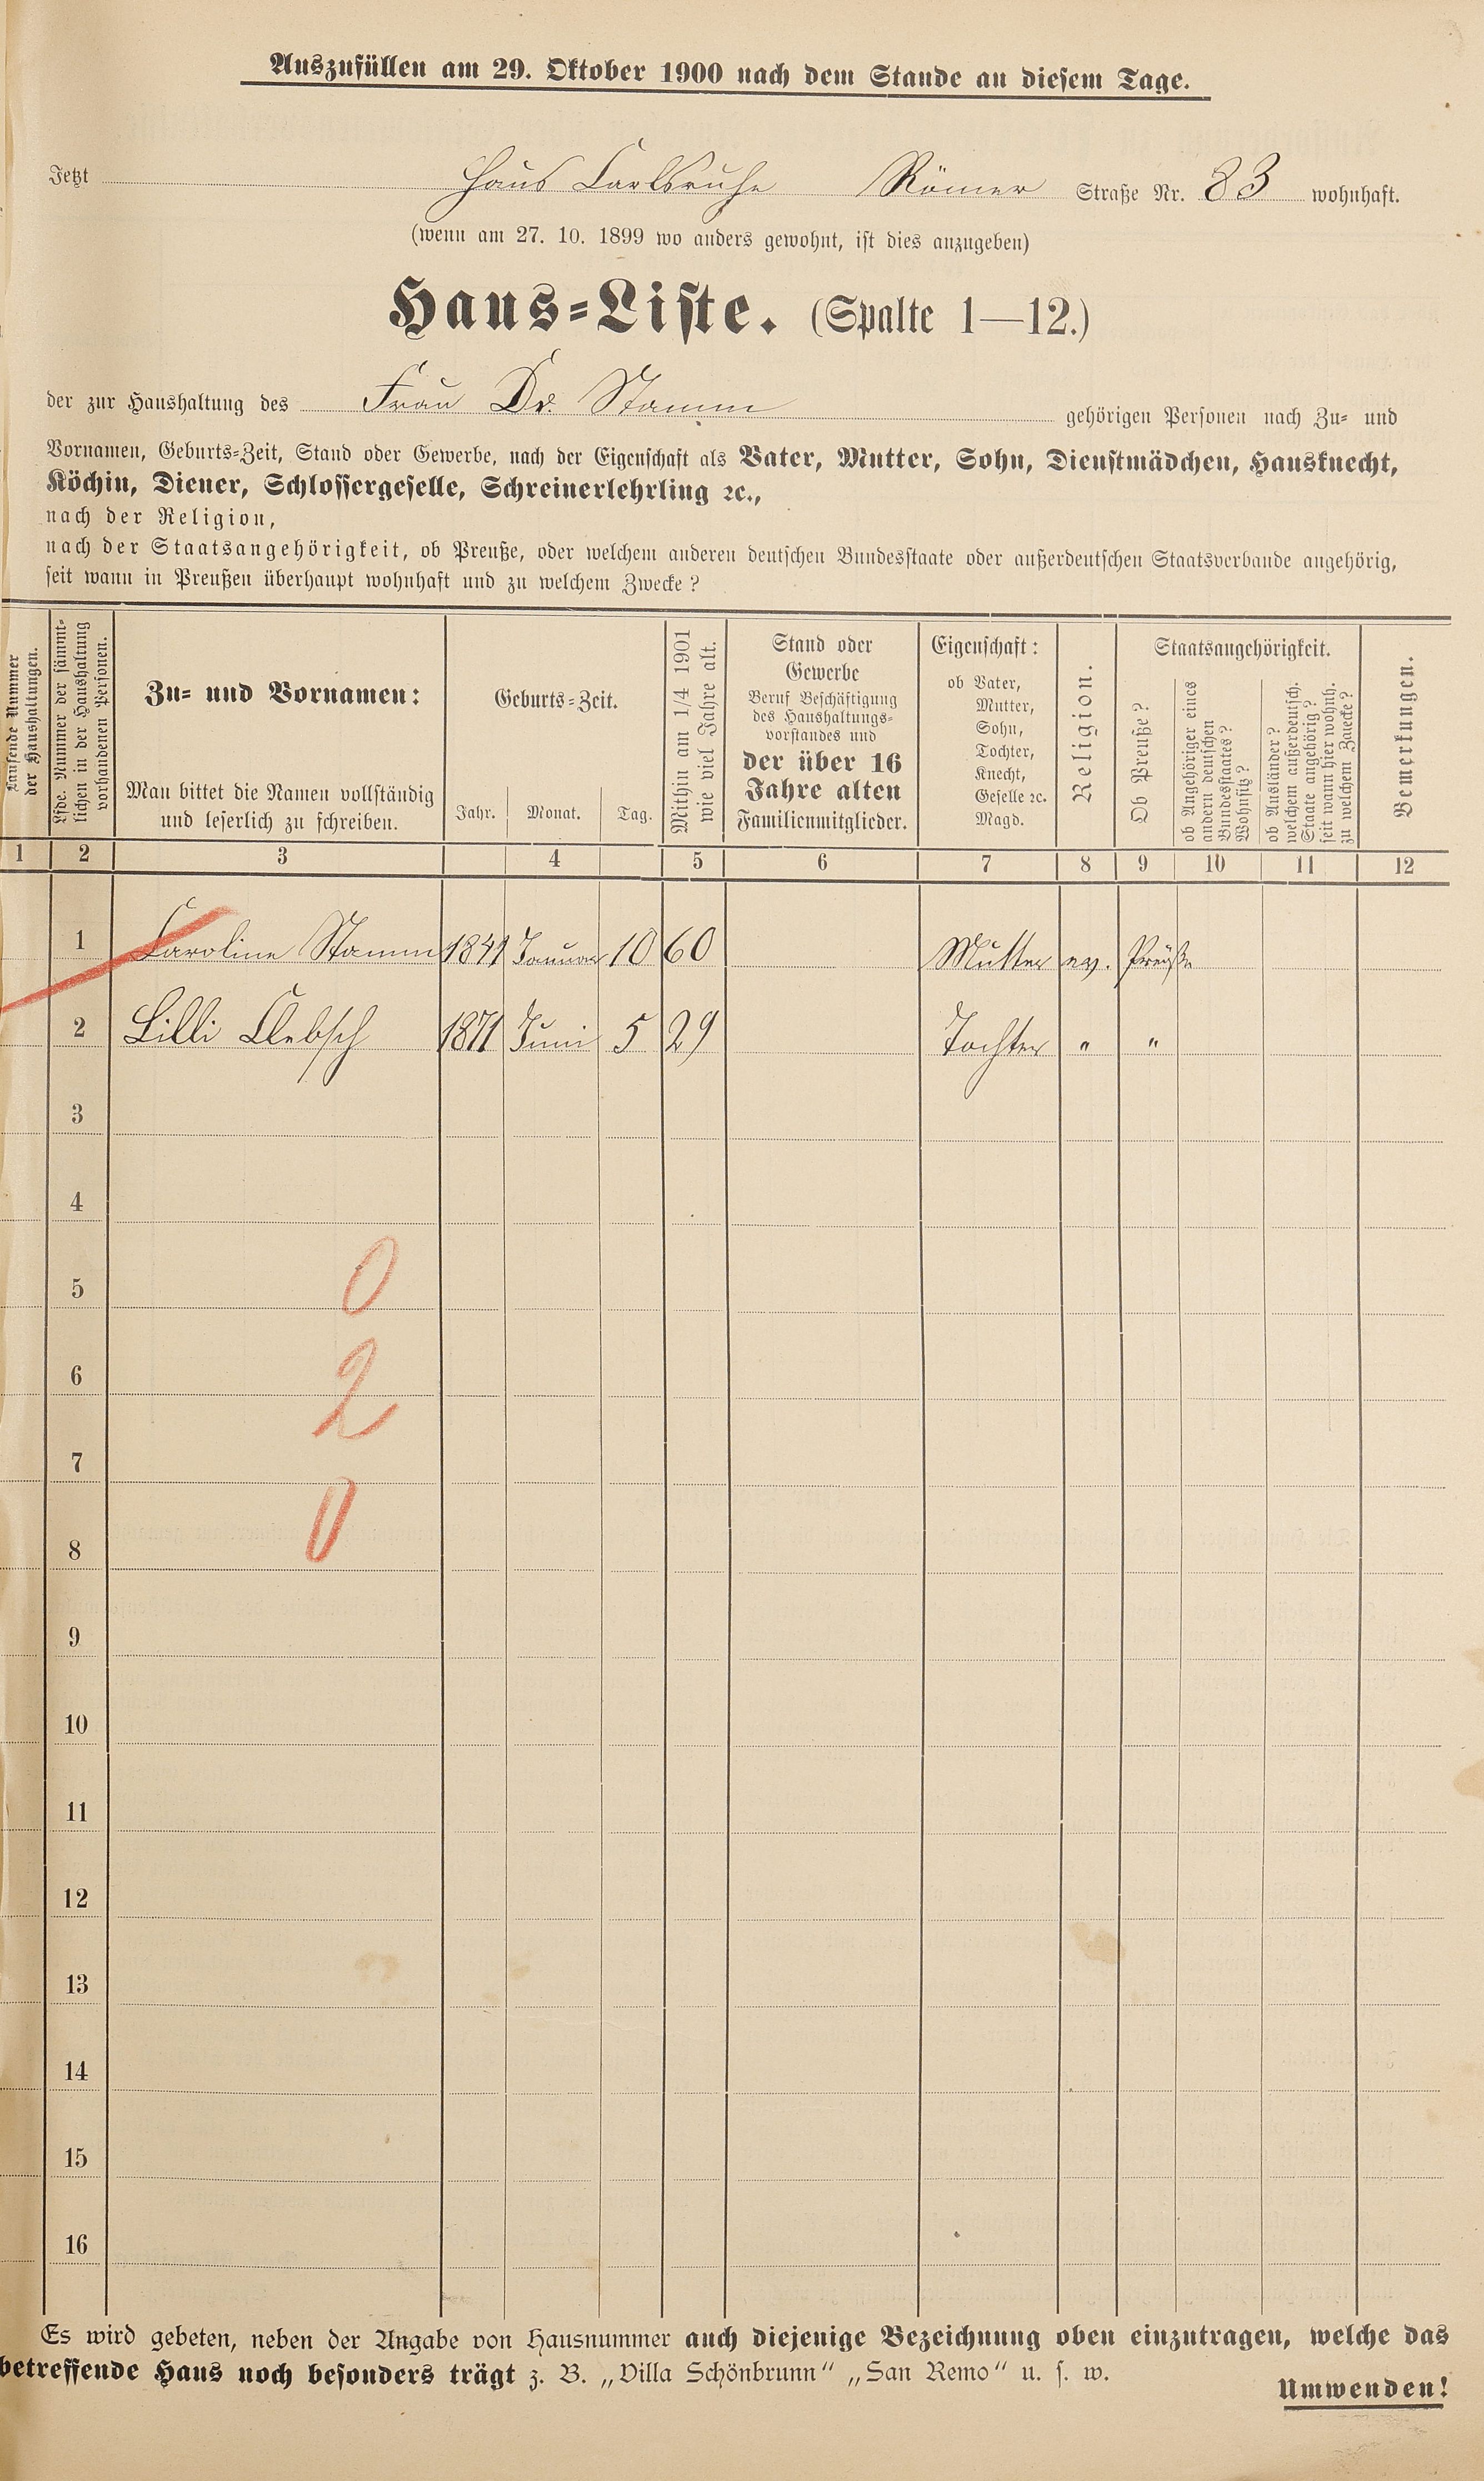 Auszufüllen am 29. Oktober 1900 nach dem Stande an diesem Tage.
Jetzt Haus Carlsruhe Römer Straße Nr. 83 wohnhaft.
(wenn am 27. 10. 1899 wo anders gewohnt, ist dies anzugeben)
Haus-Liste. (Spalte 1—12.)
der zur Haushaltung des Frau Dr. Stamm gehörigen Personen nach Zu- und
Vornamen, Geburts-Zeit, Stand oder Gewerbe, nach der Eigenschaft als Vater, Mutter, Sohn, Dienstmädchen, Hausknecht,
Köchin, Diener, Schlossergeselle, Schreinerlehrling ꝛc.,
nach der Religion,
nach der Staatsangehörigkeit, ob Preuße, oder welchem anderen deutschen Bundesstaate oder außerdeutschen Staatsverbande angehörig,
seit wann in Preußen überhaupt wohnhaft und zu welchem Zwecke?
Laufende Nummer
der Haushaltungen.
Lfde. Nummer der sämmt-
lichen in der Haushaltung
vorhandenen Personen.
Zu- und Vornamen:
Man bittet die Namen vollständig
und leserlich zu schreiben.
Geburts-Zeit.
Jahr. Monat. Tag.
Mithin am 1/4 1901
wie viel Jahre alt.
Stand oder
Gewerbe
Beruf Beschäftigung
des Haushaltungs-
vorstandes und
der über 16
Jahre alten
Familienmitglieder.
Eigenschaft:
ob Vater,
Mutter,
Sohn,
Tochter,
Knecht,
Geselle ꝛc.
Magd.
Religion.
Staatsangehörigkeit.
Ob Preuße?
ob Angehöriger eines
andern deutschen
Bundesstaates?
Wohnsitz?
ob Ausländer?
welchem außerdeutsch.
Staate angehörig?
seit wann hier wohnh.
zu welchem Zwecke?
Bemerkungen.
1 2 3 4 5 6 7 8 9 10 11 12
1 Caroline Stamm 1841 Januar 10 60 Mutter ev. Preuße
2 Lilli Clebsch 1871 Juni 5 29 Tochter " "
3
4
5 0
6 2
7
8 0
9
10
11
12
13
14
15
16
Es wird gebeten, neben der Angabe von Hausnummer auch diejenige Bezeichnung oben einzutragen, welche das
betreffende Haus noch besonders trägt z. B. „Villa Schönbrunn“ „San Remo“ u. s. w.
Umwenden!